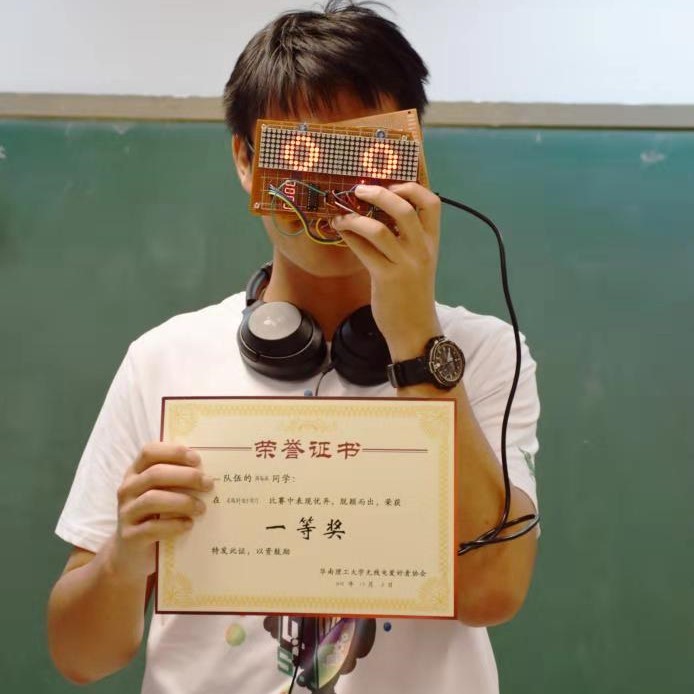 荣誉证书
队伍的 同学:
在 比赛中表现优异、脱颖而出,荣获
一等奖
特发此证,以资鼓励
华南理工大学无线电爱好者协会
年 月 日